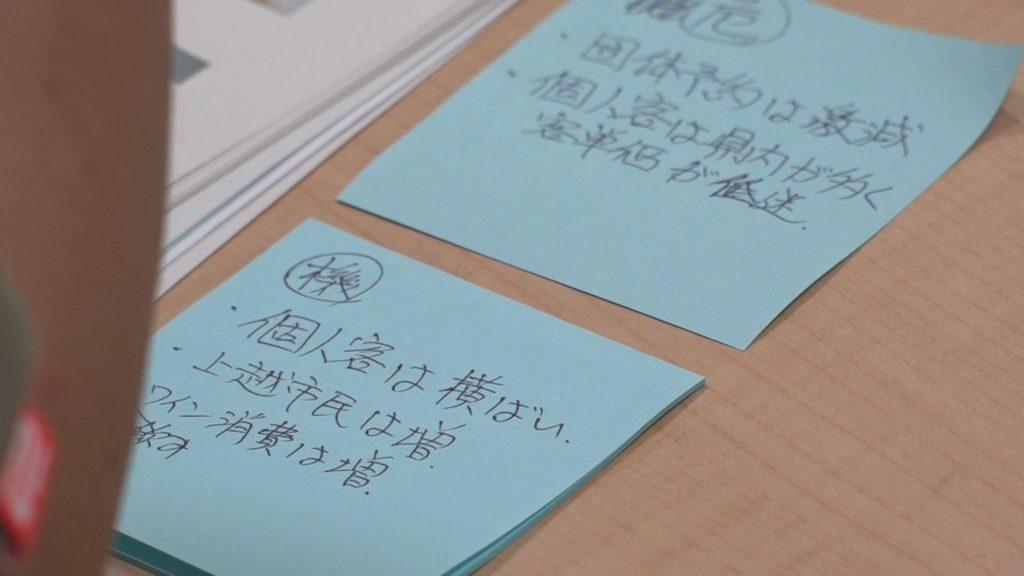 危
・団体予約は激減
・個人客は県内が多く
客単価が低迷.
機
・個人客は横ばい.
・上越市民は増.
ワイン消費は増.